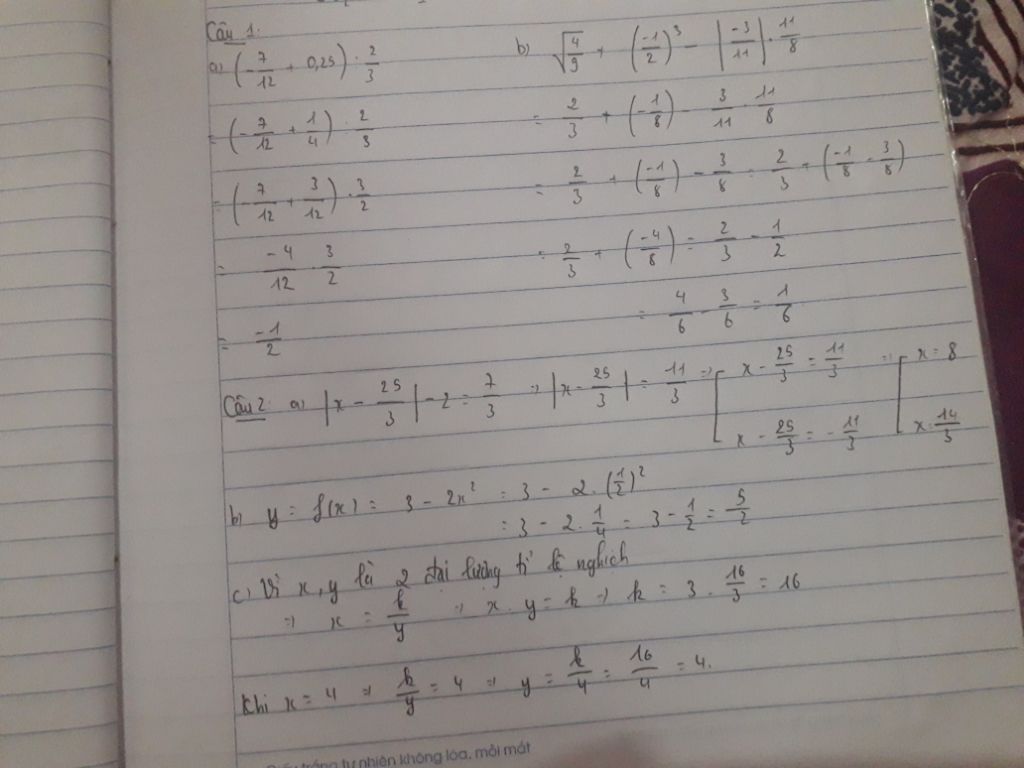 Câu 1:
a) (-7/12 + 0,25) . 2/3
= (-7/12 + 1/4) . 2/3
= (-7/12 + 3/12) . 3/2
= -4/12 . 3/2
= -1/2
b) √(4/9) + (-1/2)³ - |-3/11| . 11/8
= 2/3 + (-1/8) - 3/11 . 11/8
= 2/3 + (-1/8) - 3/8 = 2/3 + (-1/8 - 3/8)
= 2/3 + (-4/8) = 2/3 - 1/2
= 4/6 - 3/6 = 1/6
Câu 2: a) |x - 25/3| - 2 = 7/3 => |x - 25/3| = 11/3 => [ x - 25/3 = 11/3 => [ x = 8
x - 25/3 = -11/3 x = 14/3
b) y = f(x) = 3 - 2x² = 3 - 2.(1/2)²
= 3 - 2.1/4 = 3 - 1/2 = 5/2
c) Vì x, y là 2 đại lượng tỉ lệ nghịch
=> x = k/y => x . y = k => k = 3 . 16/3 = 16
Khi x = 4 => k/y = 4 => y = k/4 = 16/4 = 4.
Giấy trắng tự nhiên không lóa, mỏi mắt